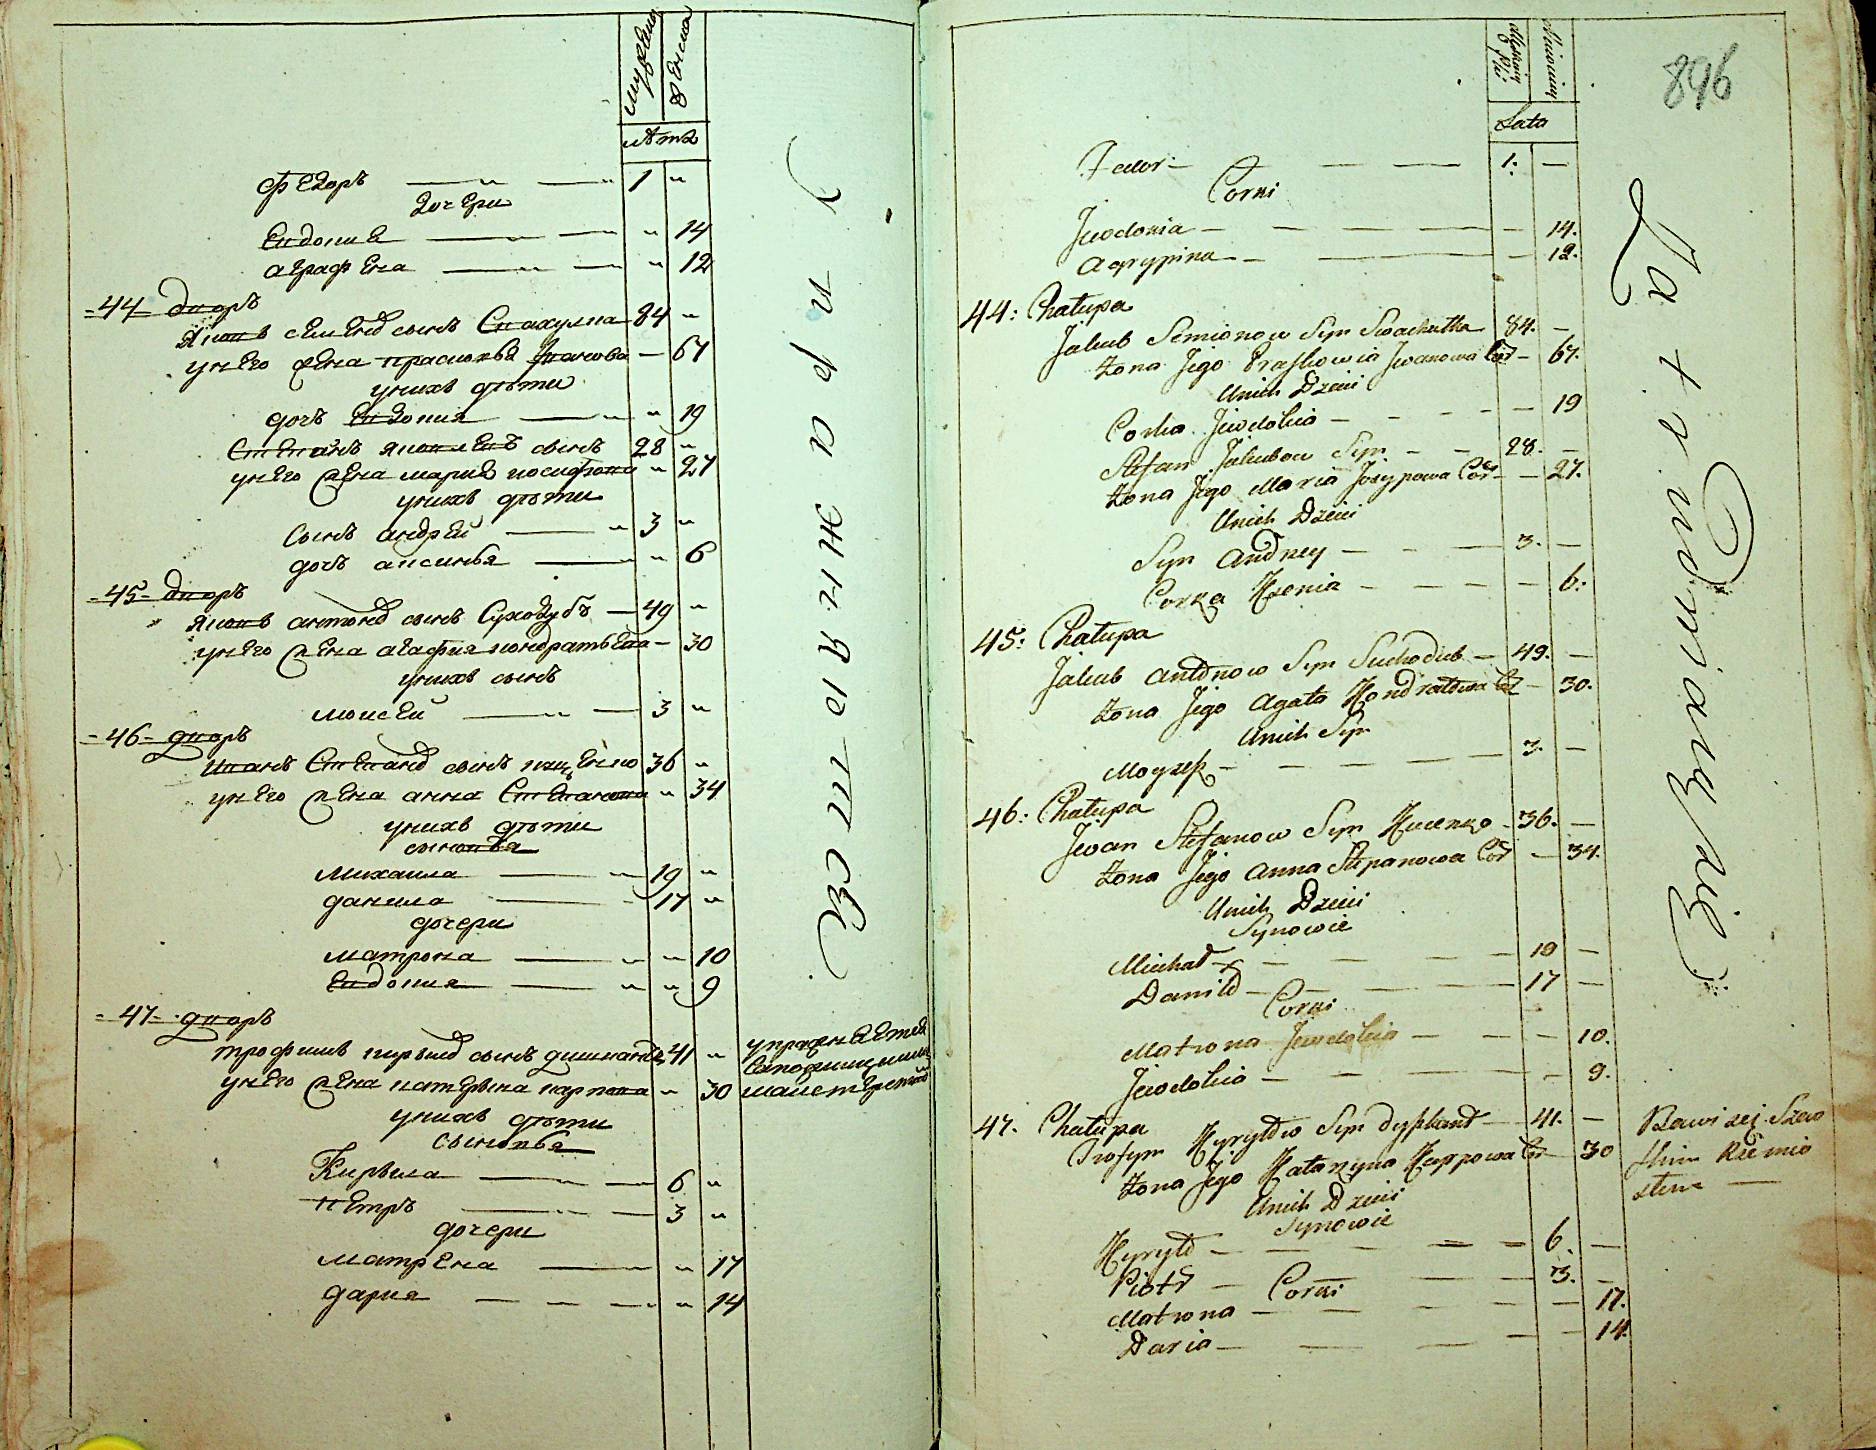 мужеска
женска
лѣта
Федоръ 1 "
дочери
Евдокиѣ " 14
аграфена " 12
44 дворъ
Яковъ семеновъ сынъ Свахулка 84 "
у него жена прасковья Иванова 67
у нихъ дѣти
дочь Евдокия " 19
Степанъ яковлевъ сынъ 28 "
у него жена мариѣ иосифова " 27
у нихъ дѣти
сынъ андрей " 3 "
дочь аксинья " 6
45 дворъ
Яковъ антоновъ сынъ Суходубъ 49 "
у него жена агафия кондратьева 30
у нихъ сынъ
моисей 3 "
46 дворъ
Иванъ Степановъ сынъ 36 "
у него жена анна Степанова " 34
у нихъ дѣти
сыновья
Михаила 19 "
данила 17 "
дочери
матрона " " 10
Евдокия " " 9
47 дворъ
трофимъ кириловъ сынъ 41 " упражняется
у него жена катерына карпова " 30 мастерствомъ
у нихъ дѣти
сыновья
Кирыла 6 "
петръ 3 "
дочери
матрена " 17
дария " 14
упражняются
896
Lata
Fedor 1. —
Corki
Jewdokia — 14.
Agrypina — 12.
44: Chałupa
Jakub Semionow Syn Swachułka 84. —
Żona Jego Praskowia Jwanowa Cor 67.
Unich Dzieci
Corka Jewdokia — 19
Stefan Jakubow Syn 28. —
Żona Jego Maria Josypowa Cor — 27.
Unich Dzieci
Syn Andrey 3. —
Corka Xenia — 6.
45: Chałupa
Jakub Antonow Syn Suchodub 49. —
Żona Jego Agata Kondratowa Cor 30.
Unich Syn
Moyzesz 3. —
46: Chałupa
Jwan Stefanow Syn Kucenko 36. —
Żona Jego Anna Stepanowa Cor — 34.
Unich Dzieci
Synowie
Michał 19 —
Daniło 17 —
Corki
Matrona Jewdokia — 10.
Jewdokia — 9.
47. Chałupa
Trofym Kyryłow Syn 41. — Bawi się Szew
Żona Jego Katarzyna Karpowa Cor 30 skim Rzemio
Unich Dzieci słem —
Synowie
Kyryło 6. —
Piotr 3. —
Corki
Matrona — 17.
Daria — 14.
Zatrudniaią się